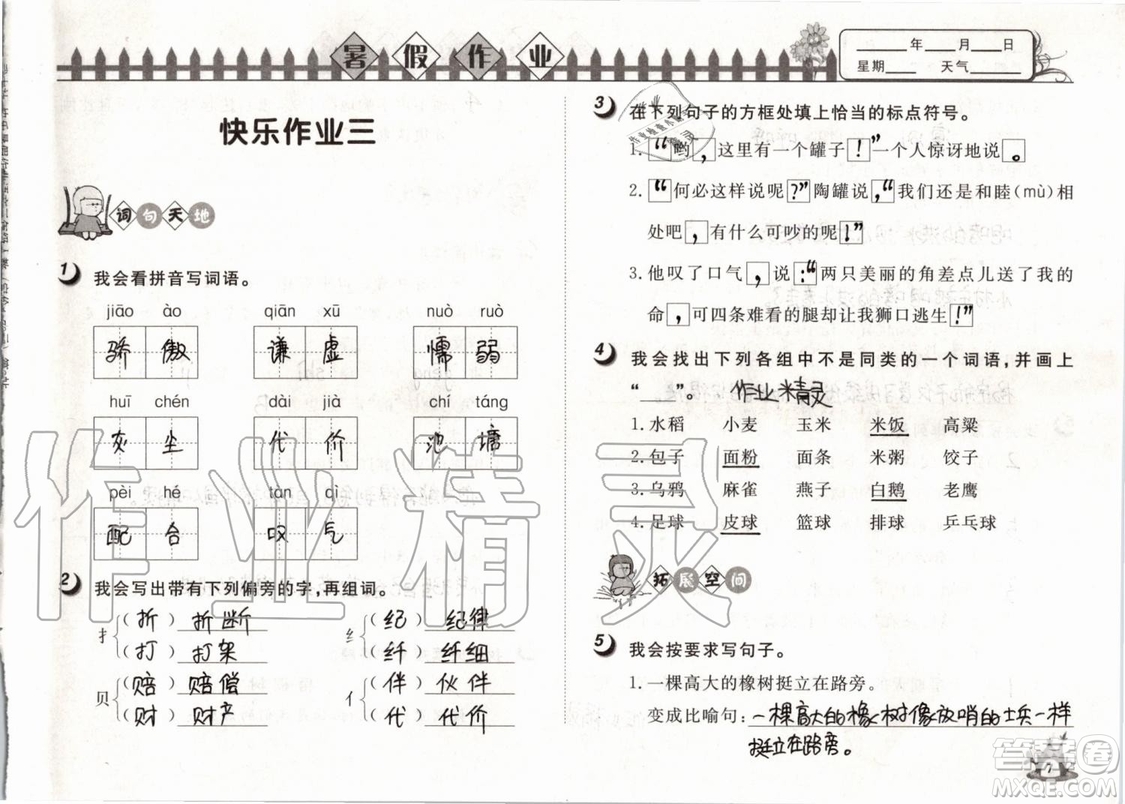 暑假作业
快乐作业三
词句天地
1 我会看拼音写词语。
jiāo ào qiān xū nuò ruò
骄傲 谦虚 懦弱
huī chén dài jià chí táng
灰尘 代价 池塘
pèi hé tàn qì
配合 叹气
2 我会写出带有下列偏旁的字,再组词。
扌 (折) 折断 纟 (纪) 纪律
(打) 打架 (纤) 纤细
贝 (赔) 赔偿 亻 (伴) 伙伴
(财) 财产 (代) 代价
____年____月____日
星期____ 天气____
3 在下列句子的方框处填上恰当的标点符号。
1.“哟,这里有一个罐子!”一个人惊讶地说。
2.“何必这样说呢?”陶罐说,“我们还是和睦(mù)相
处吧,有什么可吵的呢!”
3.他叹了口气,说:“两只美丽的角差点儿送了我的
命,可四条难看的腿却让我狮口逃生!”
4 我会找出下列各组中不是同类的一个词语,并画上
“____”。 作业精灵
1.水稻 小麦 玉米 米饭 高粱
2.包子 面粉 面条 米粥 饺子
3.乌鸦 麻雀 燕子 白鹅 老鹰
4.足球 皮球 篮球 排球 乒乓球
拓展空间
5 我会按要求写句子。
1.一棵高大的橡树挺立在路旁。
变成比喻句:一棵高大的橡树像放哨的士兵一样
挺立在路旁。
7
作业精灵
答案圈
MXQE.COM